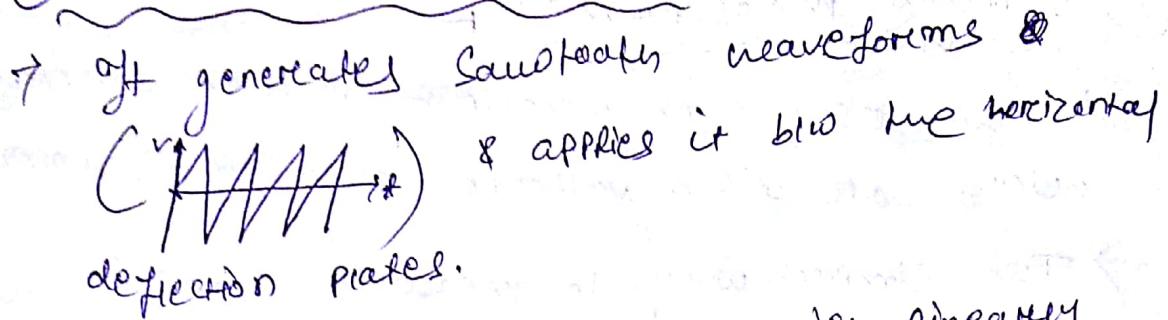 → It generates Sawtooth waveforms
(V t) & applies it b/w the horizontal
deflection plates.
linearly